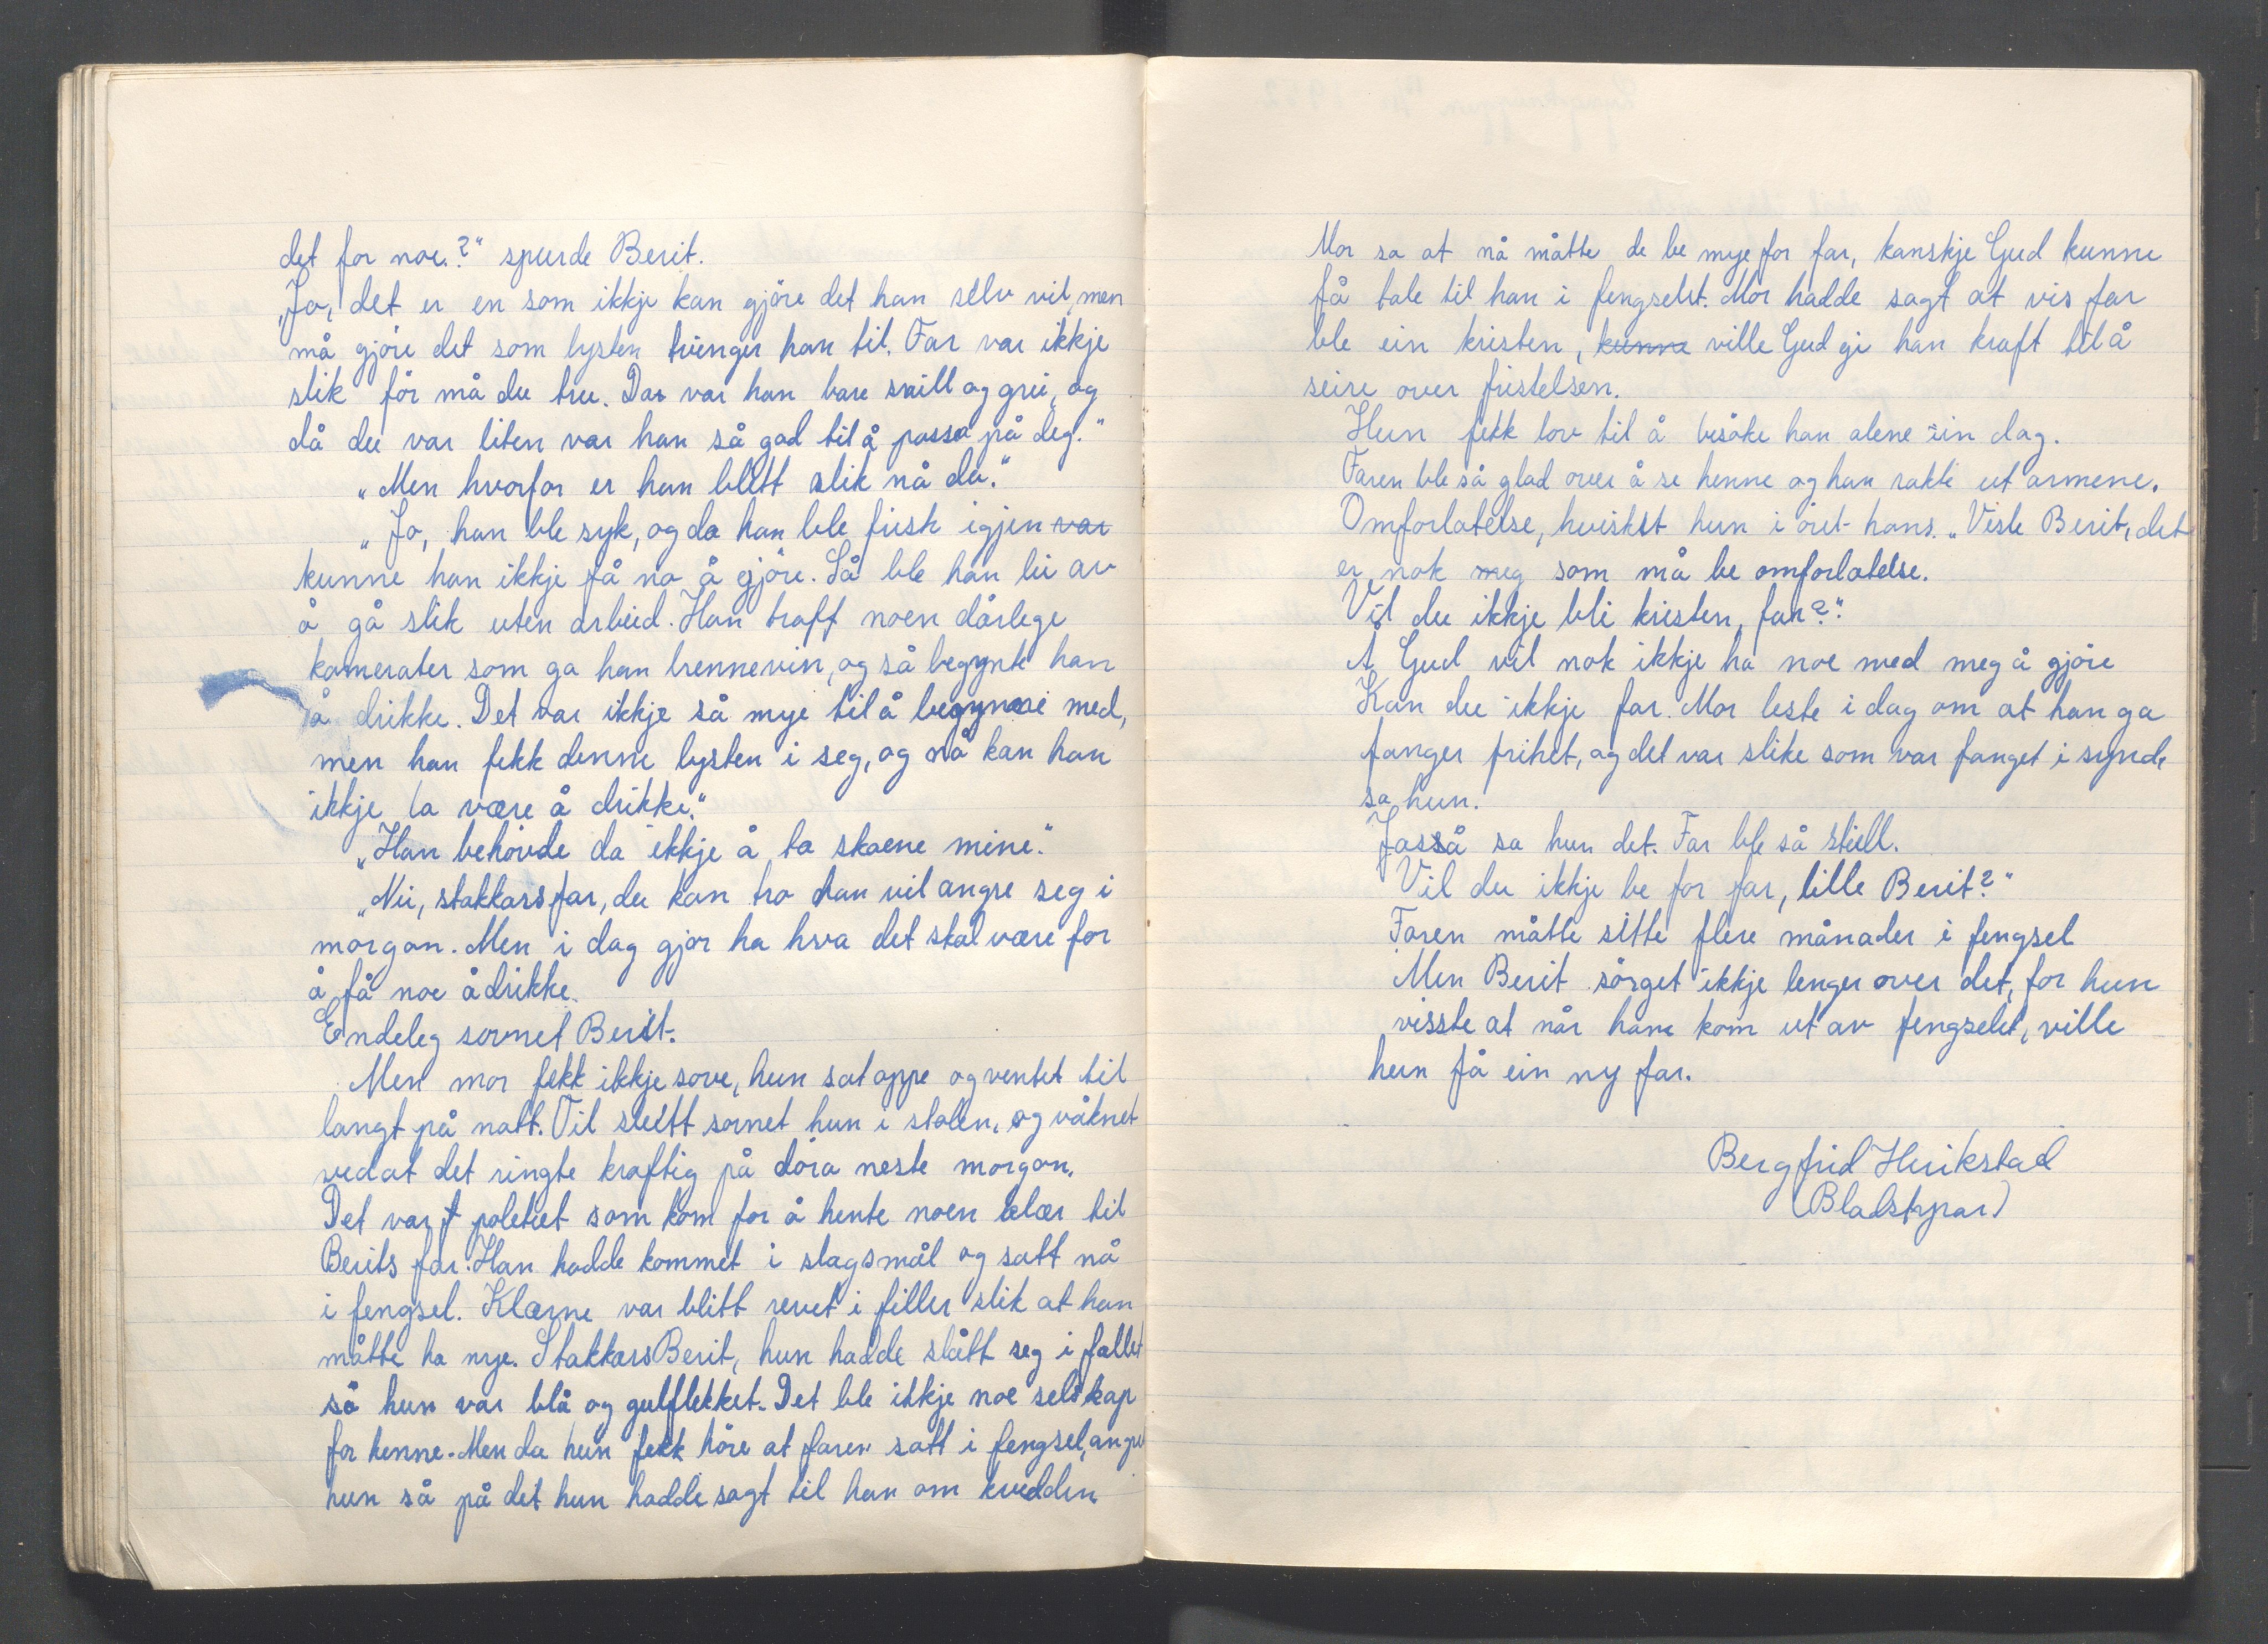 det for noe?" spurde Berit.
„Jo, det er en som ikkje kan gjöre det han selv vil, men
må gjöre det som lysten tvinger han til. Far var ikkje
slik för må du tru. Da var han bare snill og grei, og
då du var liten var han så god til å passa på deg."
„Men hvorfor er han blitt slik nå da."
„Jo, han ble syk, og da han ble frisk igjen var
kunne han ikkje få no å gjöre. Så ble han lei av
å gå slik uten arbeid. Han traff noen dårlege
kamerater som ga han brennevin, og så begynte han
å drikke. Det var ikkje så mye til å begynne med,
men han fekk denne lysten i seg, og nå kan han
ikkje la være å drikke."
„Han behövde da ikkje å ta skoene mine."
„Nei, stakkars far, du kan tro han vil angre seg i
morgon. Men i dag gjör ha hva det skal være for
å få noe å drikke.
Endeleg sovnet Berit.
Men mor fekk ikkje sove, hun sat oppe og ventet til
langt på natt. Til slutt sovnet hun i stolen, og våknet
ved at det ringte kraftig på döra neste morgon.
Det var politiet som kom for å hente noen klær til
Berits far. Han hadde kommet i slagsmål og satt nå
i fengsel. Klærne var blitt revet i filler slik at han
måtte ha nye. Stakkars Berit, hun hadde slått seg i fallet
så hun var blå og gulflekket. Det ble ikkje noe selskap
for henne. Men da hun fekk höre at faren satt i fengsel, angre
hun så på det hun hadde sagt til han om kvelden.
Mor sa at nå måtte de be mye for far, kanskje Gud kunne
få tale til han i fengselet. Mor hadde sagt at vis far
ble ein kristen, kunne ville Gud gi han kraft til å
seire over fristelsen.
Hun fekk lov til å besöke han alene ein dag.
Faren ble så glad over å se henne og han rakte ut armene.
Omforlatelse, hviskst hun i öret hans. „Vesle Berit, det
er nok meg som må be omforlatelse.
Vil du ikkje bli kristen, far?"
Å Gud vil nok ikkje ha noe med meg å gjöre
Kan du ikkje far. Mor leste i dag om at han ga
fanger frihet, og det var slike som var fanget i synd,
sa hun.
Jasså sa hun det. Far ble så still.
Vil du ikkje be for far, lille Berit?"
Faren måtte sitte flere månader i fengsel
Men Berit sörget ikkje lenger over det, for hun
visste at når han kom ut av fengselet, ville
hun få ein ny far.
Bergfrid Herikstad
(Bladstyrar)